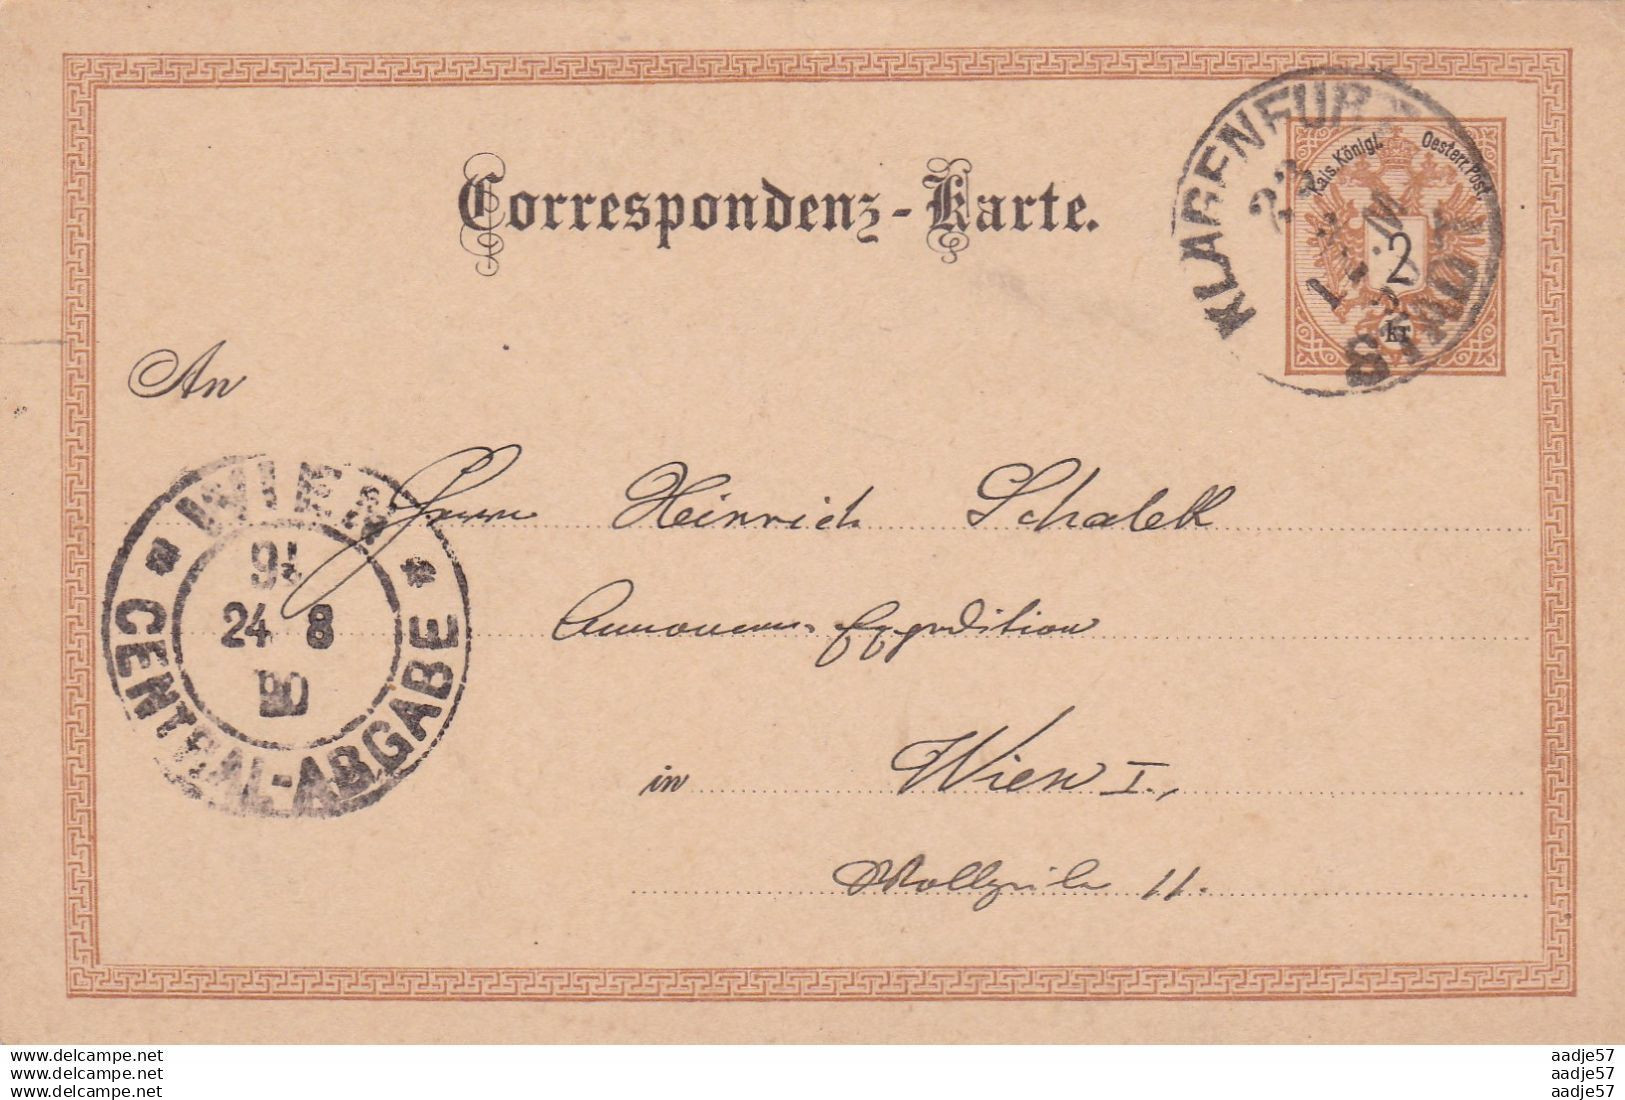 Correspondenz-Karte.
Kais. Königl. Oesterr. Post.
2
kr
KLAGENFURT
STADT
An
Herrn Heinrich Schalek
Annoncen-Expedition
in Wien I.,
Wollzeile 11.
WIEN
24 8
90
CENTRAL-ABGABE
www.delcampe.net
www.delcampe.net
www.delcampe.net
aadje57
aadje57
aadje57